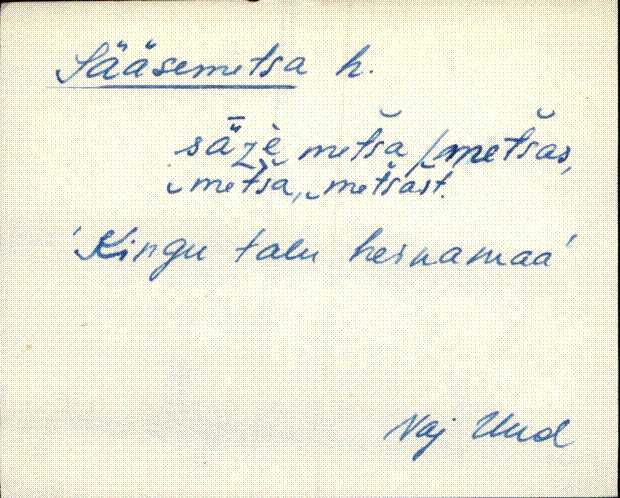 Sääsemetsa h.
sǟzè metša / metšas,
metša, metšast.
'Kingu talu heinamaa'
Naj Uud